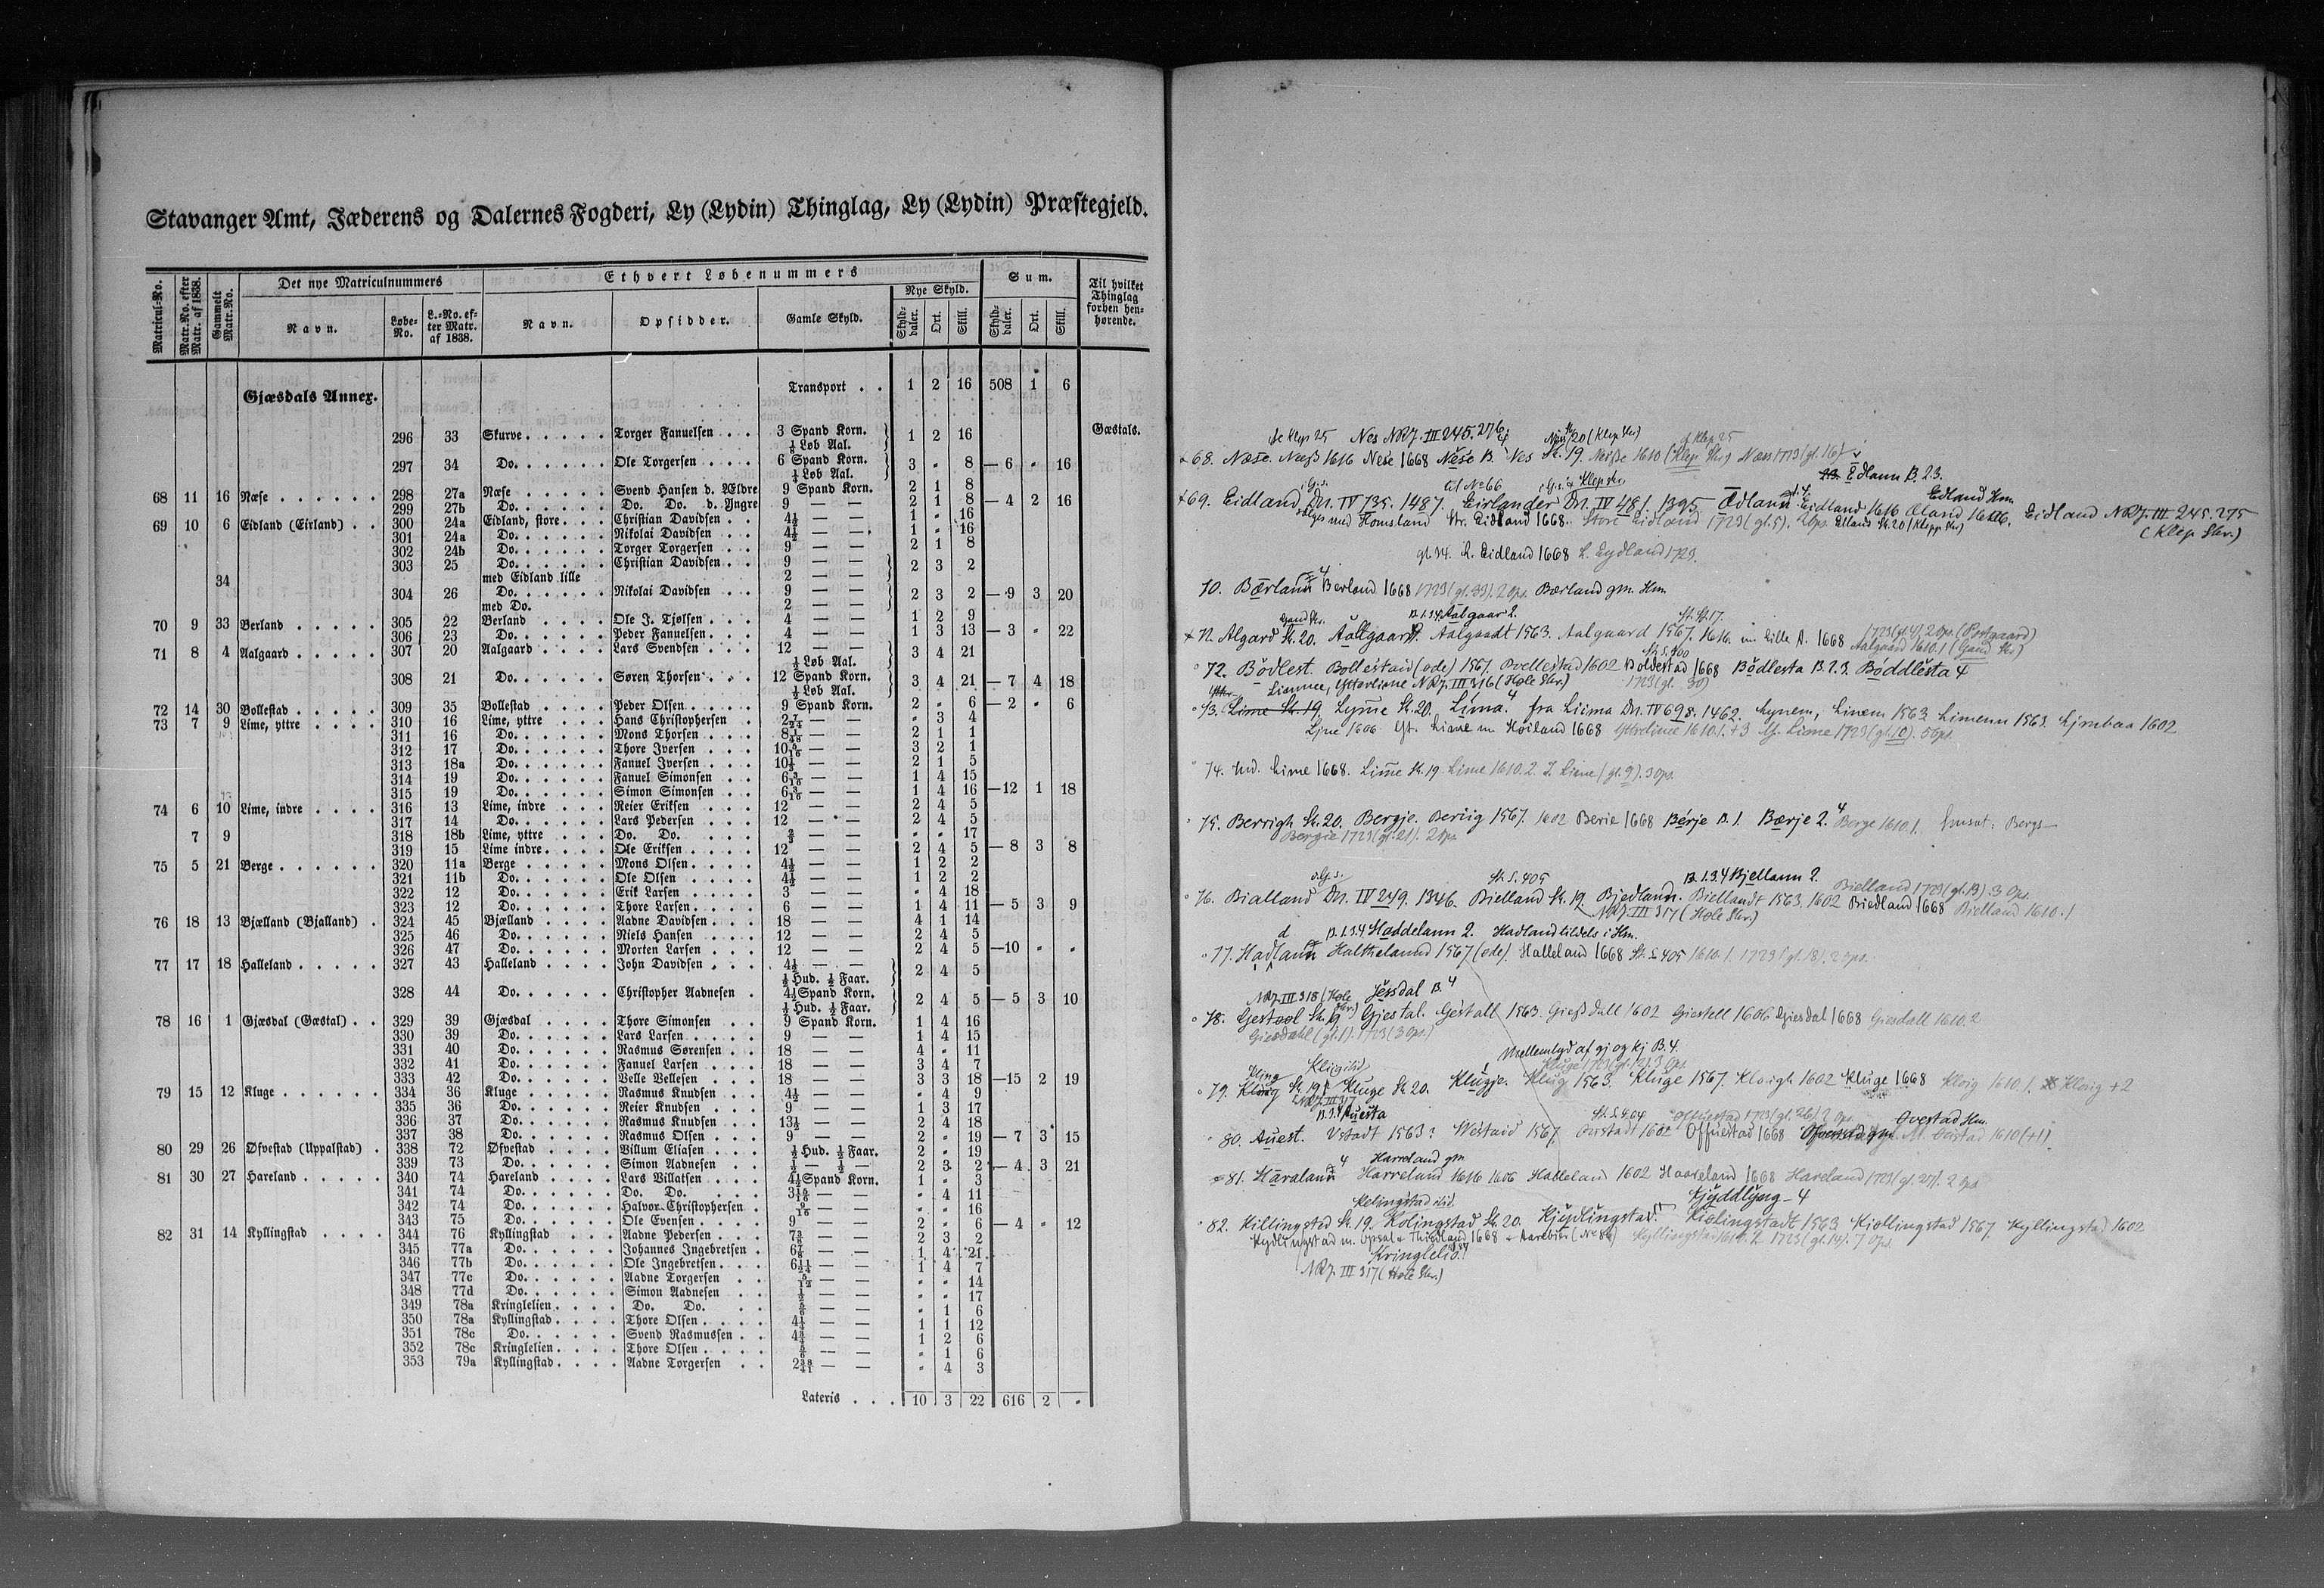 Stavanger Amt, Jæderens og Dalernes Fogderi, Ly (Lydin) Thinglag, Ly (Lydin) Præstegjeld.
Matricul-No. Matr.No. efter Matr. af 1838. Gammelt Matr.No. Det nye Matriculnummers Ethvert Løbenummers Sum. Til hvilket Thinglag forhen henhørende.
Navn. Løbe-No. L.-No. efter Matr. af 1838. Navn. Opsidder. Gamle Skyld. Nye Skyld. Skylddaler. Ort. Skill. Skylddaler. Ort. Skill.
Gjæsdals Annex. Transport . . 1 2 16 508 1 6
296 33 Skurve Torger Fanuelsen 3 Spand Korn. 1 2 16 Gæstals.
⅛ Løb Aal.
297 34 Do. Ole Torgersen 6 Spand Korn. 3 " 8 — 6 " 16
¼ Løb Aal.
68 11 16 Næse 298 27a Næse Svend Hansen d. Ældre 9 Spand Korn. 2 1 8
299 27b Do. Do. Do. d. Yngre 9 — — 2 1 8 — 4 2 16
69 10 6 Eidland (Eirland) 300 24a Eidland, store Christian Davidsen 4½ — — 1 " 16
301 24a Do. Nikolai Davidsen 4½ — — 1 " 16
302 24b Do. Torger Torgersen 9 — — 2 1 8
303 25 Do. Christian Davidsen 9 — — 2 3 2
34 med Eidland lille 2 — —
304 26 Do. Nikolai Davidsen 9 — — 2 3 2 — 9 3 20
med Do. 2 — —
70 9 33 Berland 305 22 Berland Ole J. Tjølsen 4 — — 1 2 9
306 23 Do. Peder Fanuelsen 4 — — 1 3 13 — 3 " 22
71 8 4 Aalgaard 307 20 Aalgaard Lars Svendsen 12 — — 3 4 21
½ Løb Aal.
308 21 Do. Søren Thorsen 12 Spand Korn. 3 4 21 — 7 4 18
½ Løb Aal.
72 14 30 Bollestad 309 35 Bollestad Peder Olsen 9 Spand Korn. 2 " 6 — 2 " 6
73 7 9 Lime, yttre 310 16 Lime, yttre Hans Christophersen 2 7/24 — — " 3 4
311 16 Do. Mons Thorsen 8 1/48 — — 2 1 1
312 17 Do. Thore Iversen 10 5/16 — — 3 2 1
313 18a Do. Fanuel Iversen 10⅓ — — 2 1 5
314 19 Do. Fanuel Simonsen 6 3/16 — — 1 4 15
315 19 Do. Simon Simonsen 6 3/16 — — 1 4 16 —12 1 18
74 6 10 Lime, indre 316 13 Lime, indre Reier Eriksen 12 — — 2 4 5
317 14 Do. Lars Pedersen 12 — — 2 4 5
7 9 318 18b Lime, yttre Do. Do. ⅔ — — " " 17
319 15 Lime indre Ole Eriksen 12 — — 2 4 5 — 8 3 8
75 5 21 Berge 320 11a Berge Mons Olsen 4½ — — 1 2 2
321 11b Do. Ole Olsen 4½ — — 1 2 2
322 12 Do. Erik Larsen 3 — — " 4 18
323 12 Do. Thore Larsen 6 — — 1 4 11 — 5 3 9
76 18 13 Bjælland (Bjalland) 324 45 Bjælland Aadne Davidsen 18 — — 4 1 14
325 46 Do. Niels Hansen 12 — — 2 4 5
326 47 Do. Morten Larsen 12 — — 2 4 5 —10 " "
77 17 18 Halleland 327 43 Halleland John Davidsen 4½ — — 2 4 5
½ Hud. ½ Faar.
328 44 Do. Christopher Aadnesen 4½ Spand Korn. 2 4 5 — 5 3 10
½ Hud. ½ Faar.
78 16 1 Gjæsdal (Gæstal) 329 39 Gjæsdal Thore Simonsen 9 Spand Korn. 1 4 16
330 39 Do. Lars Larsen 9 — — 1 4 15
331 40 Do. Rasmus Sørensen 18 — — 4 " 11
332 41 Do. Fanuel Larsen 18 — — 3 4 7
333 42 Do. Velle Vellesen 18 — — 3 3 18 —15 2 19
79 15 12 Kluge 334 36 Kluge Rasmus Knudsen 4½ — — " 4 9
335 36 Do. Reier Knudsen 9 — — 1 3 17
336 37 Do. Rasmus Knudsen 13½ — — 2 4 18
337 38 Do. Rasmus Olsen 9 — — 2 " 19 — 7 3 15
80 29 26 Øfvestad (Uppalstad) 338 72 Øfvestad Villum Eliasen ½ Hud. ½ Faar. 2 " 19
339 73 Do. Simon Aadnesen ½ — ½ — 2 3 2 — 4 3 21
81 30 27 Hareland 340 74 Hareland Lars Villatsen 4½ Spand Korn. 1 " 3
341 74 Do. Do. Do. 3 15/16 — — " 4 11
342 74 Do. Halvor Christophersen 9/16 — — " " 16
343 75 Do. Ole Evensen 9 — — 2 " 6 — 4 " 12
82 31 14 Kyllingstad 344 76 Kyllingstad Aadne Pedersen 7⅜ — — 2 3 2
345 77a Do. Johannes Ingebretsen 6⅞ — — 1 4 21
346 77b Do. Ole Ingebretsen 6 11/24 — — 1 4 7
347 77c Do. Aadne Torgersen 5/12 — — " " 14
348 77d Do. Simon Aadnesen ½ — — " " 17
349 78a Kringlelien Do. Do. ⅚ — — " 1 6
350 78a Kyllingstad Thore Olsen 4¼ — — 1 1 12
351 78c Do. Svend Rasmussen 4¾ — — 1 2 6
352 78c Kringlelien Thore Olsen ⅚ — — " 1 6
353 79a Kyllingstad Aadne Torgersen 2 38/41 — — " 4 3
Lateris . . . 10 3 22 616 2 "
Nes NRJ. III 245. 276
68. Næse. Næss 1616 Nese 1668 Nese B. Nes St. 19. 1610 (Klep Skr.) Næss 1723 (gl. 16)
Edlann B. 2.3.
69. Eidland DN. IV 735. 1487. Eirlander DN. IV 481. 1395 Ødlann Eidland 1616 Edland Hm. Eidland NRJ. III 245. 275
Homsland Str. Eidland 1668. Store Eidland 1723 (gl. 5). (Klep Skr.)
gl 34. L. Eidland 1668 L. Eydland 1723.
70. Bærlann Berland 1668 1723 (gl. 33). 2 Ops. Bærland gm. Hm.
B. 1.3.4 Aalgaar 2.
71. Algard St. 20. Aalgaardt 1563. Aalgaard 1567. 1616. m Lille A. 1668 1723 (gl. 4) 2 Ops. (Postgaard)
Aalgaard 1610.1 (Gand Skr.)
72. Bödlest. Bollestaid (øde) 1567. Bollestad 1602 Boldestad 1668 Bödlesta B. 2.3. Böddlesta 4
Limnee, Ytterlime NRJ. III 316 (Hole Skr.)
73. Lime St. 19. Lyme St. 20. Lima. fra Liima DN. IV 698. 1462. Lynem, Linem 1563 Limenn 1563.
Ljne 1606 Yt. Lime m Høiland 1668 Ytterlime 1610.1. +3 Yt. Lime 1723 (gl. 10). 5 Ops.
74. Ind. Lime 1668. Lime St. 19 Lime 1610. 2. I. Lime (gl. 9). 3 Ops.
75. Berrigh St. 20. Bergje. Beriig 1567. 1602 Berie 1668 Berje B. 1. Bærje 2. Berge 1610.1.
Bergie 1723 (gl. 21). 2 Ops
St. S. 405 B. 1.3.4 Bjellann 2. Bielland 1723 (gl. 13). 3 Ops.
76. Bialland DN. IV 249. 1346. Bielland St. 19. Bjedlann. Biellandt 1563. 1602 Biedland 1668 Bielland 1610.1
NRJ. III 317 (Hole Skr.)
B. 1.3.4 Haddelann 2. Hadland tildels i Hm.
77. Hadlann Halthelannd 1567 (øde). Halleland 1668 St. S. 405 1610.1. 1723 (gl. 18). 2 Ops.
NRJ. III 318 (Hole Skr.) Jessdal B. 4
78. Gestool St. 19 Gjestal. Gestall 1563. Giessdall 1602 Giestell 1606 Giesdal 1668 Giesdall 1610.2
Giesdahl (gl. 1). 1723 (3 Ops.)
Mellemlyd af gj og kj B. 4.
79. Kluge St. 20. Klugje. Klug 1563. Kluge 1567. Kloigh 1602 Kluge 1668 Kloig 1610.1. Kloig +2
NRJ. III 317
B. 3.4 Auesta St. S. 404 Offuestad 1723 (gl. 26) 2 Ops. Ovestad Hm.
80. Auest. Vstadt 1563? Westaid 1567. Ovrstadt 1602 Offuestad 1668
Harreland gm
81. Haralann Harreland 1616 1606 Halleland 1602 Haareland 1668 Hareland 1723 (gl. 27). 2 Ops
82. Killingstad St. 19. Kolingstad St. 20. Kjydlingstad. Kiølingstadt 1563 Kiøllingstad 1567. Kyllingstad 1602
Kydlingstad m. Opsal 1668 Kyllingstad 1610. 2 1723 (gl. 14). 7 Ops.
Kringleliö.
NRJ. III 317 (Hole Skr.)